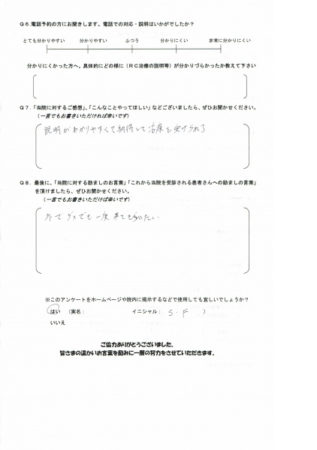 Q6.電話予約の方にお聞きします。電話での対応・説明はいかがでしたか?
とても分かりやすい 分かりやすい ふつう 分かりにくい 非常に分かりにくい
分かりにくかった方へ、具体的にどの様に(RC治療の説明等)が分かりづらかったか教えて下さい
Q7.「当院に対するご感想」、「こんなことやってほしい」などございましたら、ぜひお聞かせください。
(一言でもお書きいただければ幸いです)
説明がわかりやすくて納得して治療を受けられ
Q8.最後に、「当院に対する励ましのお言葉」「これから当院を受診される患者さんへの励ましの言葉」
を頂けましたら、ぜひお聞かせください。
(一言でもお書きいただければ幸いです)
でも一度来て
※このアンケートをホームページや院内に掲示するなどで使用しても宜しいでしょうか?
はい (実名: イニシャル: S.F )
いいえ
ご協力ありがとうございました。
皆さまの温かいお言葉を励みに一層の努力をさせていただきます。